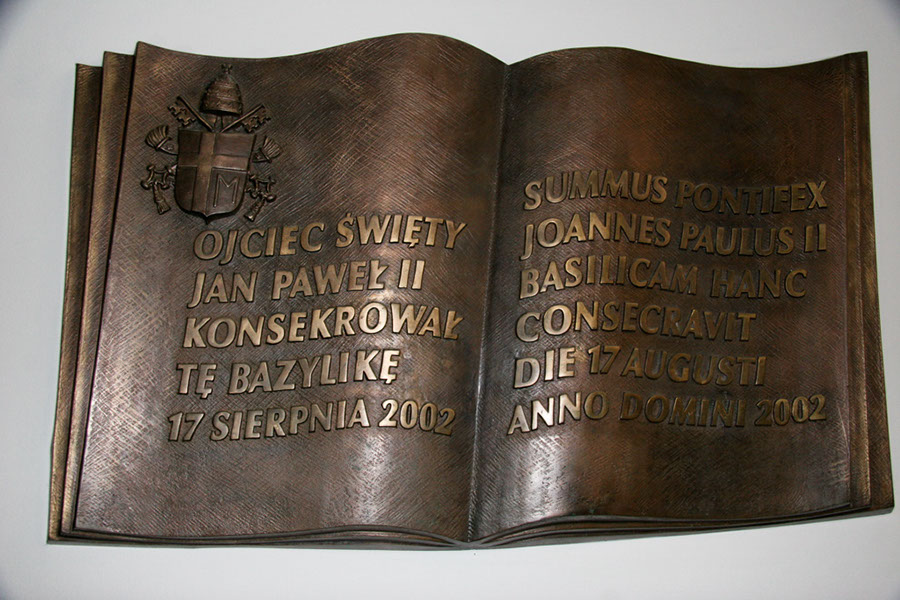 M
OJCIEC ŚWIĘTY
JAN PAWEŁ II
KONSEKROWAŁ
TĘ BAZYLIKĘ
17 SIERPNIA 2002
SUMMUS PONTIFEX
JOANNES PAULUS II
BASILICAM HANC
CONSECRAVIT
DIE 17 AUGUSTI
ANNO DOMINI 2002